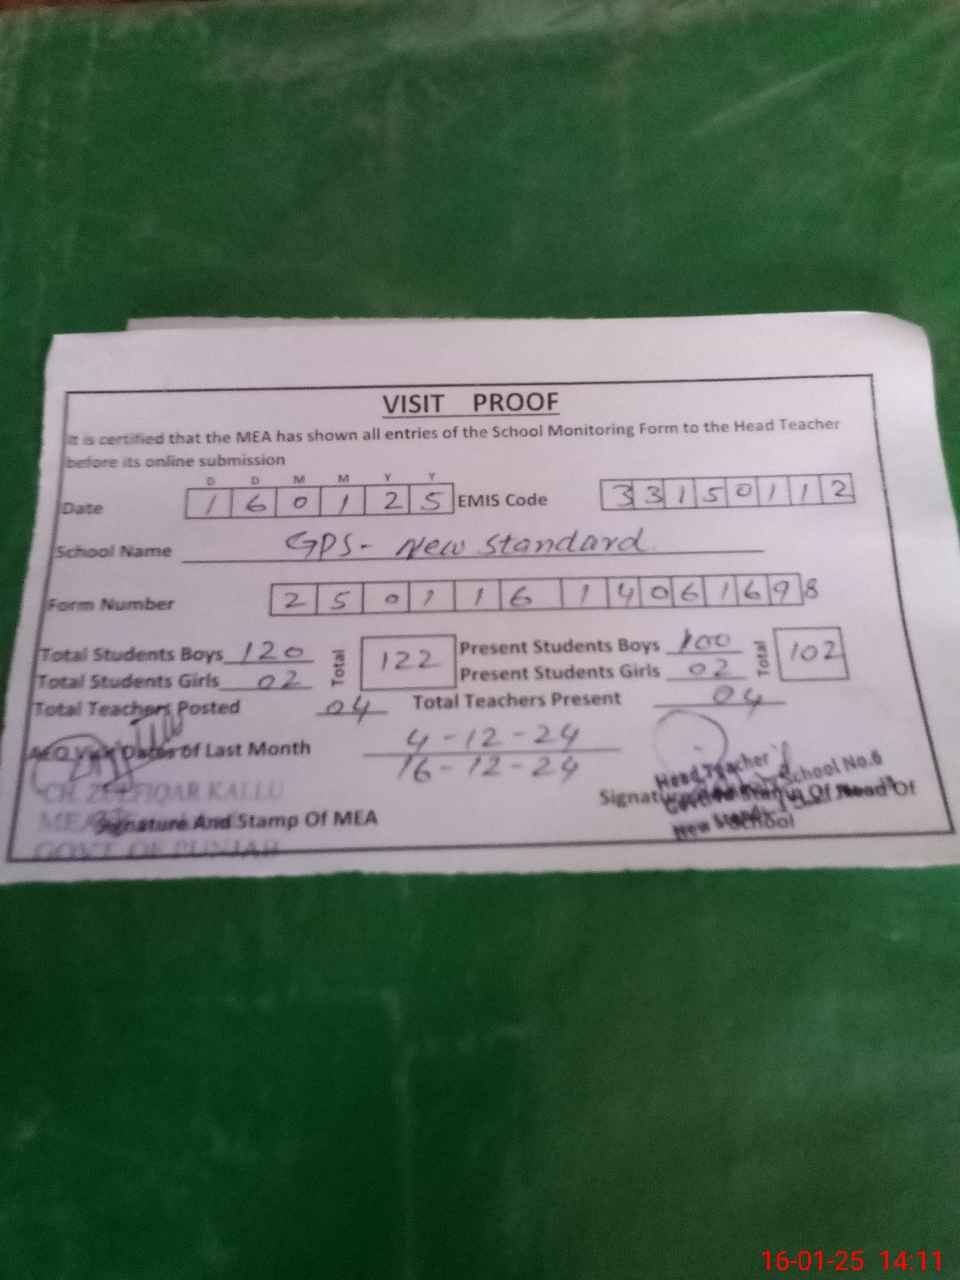 VISIT PROOF
It is certified that the MEA has shown all entries of the School Monitoring Form to the Head Teacher
before its online submission
D D M M Y Y
Date 1 6 0 1 2 5 EMIS Code 3 3 1 5 0 1 1 2
School Name GPS- New Standard
Form Number 2 5 0 1 1 6 1 4 0 6 1 6 9 8
Total Students Boys 120 Total 122 Present Students Boys 100 Total 102
Total Students Girls 02 Present Students Girls 02
Total Teachers Posted 04 Total Teachers Present 04
AEO Visit Dates of Last Month 4-12-24
16-12-24
Head Teacher
School No.6
CH. ZULFIQAR KALLU
Signature Of Head Of
MEA
Signature And Stamp Of MEA
New School
GOVT OF PUNJAB
16-01-25 14:11